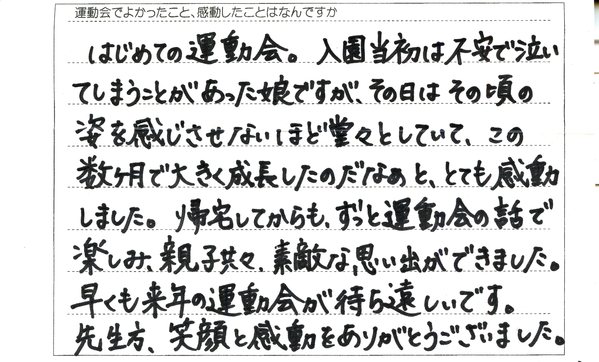 運動会でよかったこと、感動したことはなんですか
はじめての運動会。入園当初は不安で泣い
てしまうことがあった娘ですが、その日はその頃の
姿を感じさせないほど堂々としていて、この
数ヶ月で大きく成長したのだなぁと、とても感動
しました。帰宅してからも、ずっと運動会の話で
楽しみ、親子共々、素敵な思い出ができました。
早くも来年の運動会が待ち遠しいです。
先生方、笑顔と感動をありがとうございました。